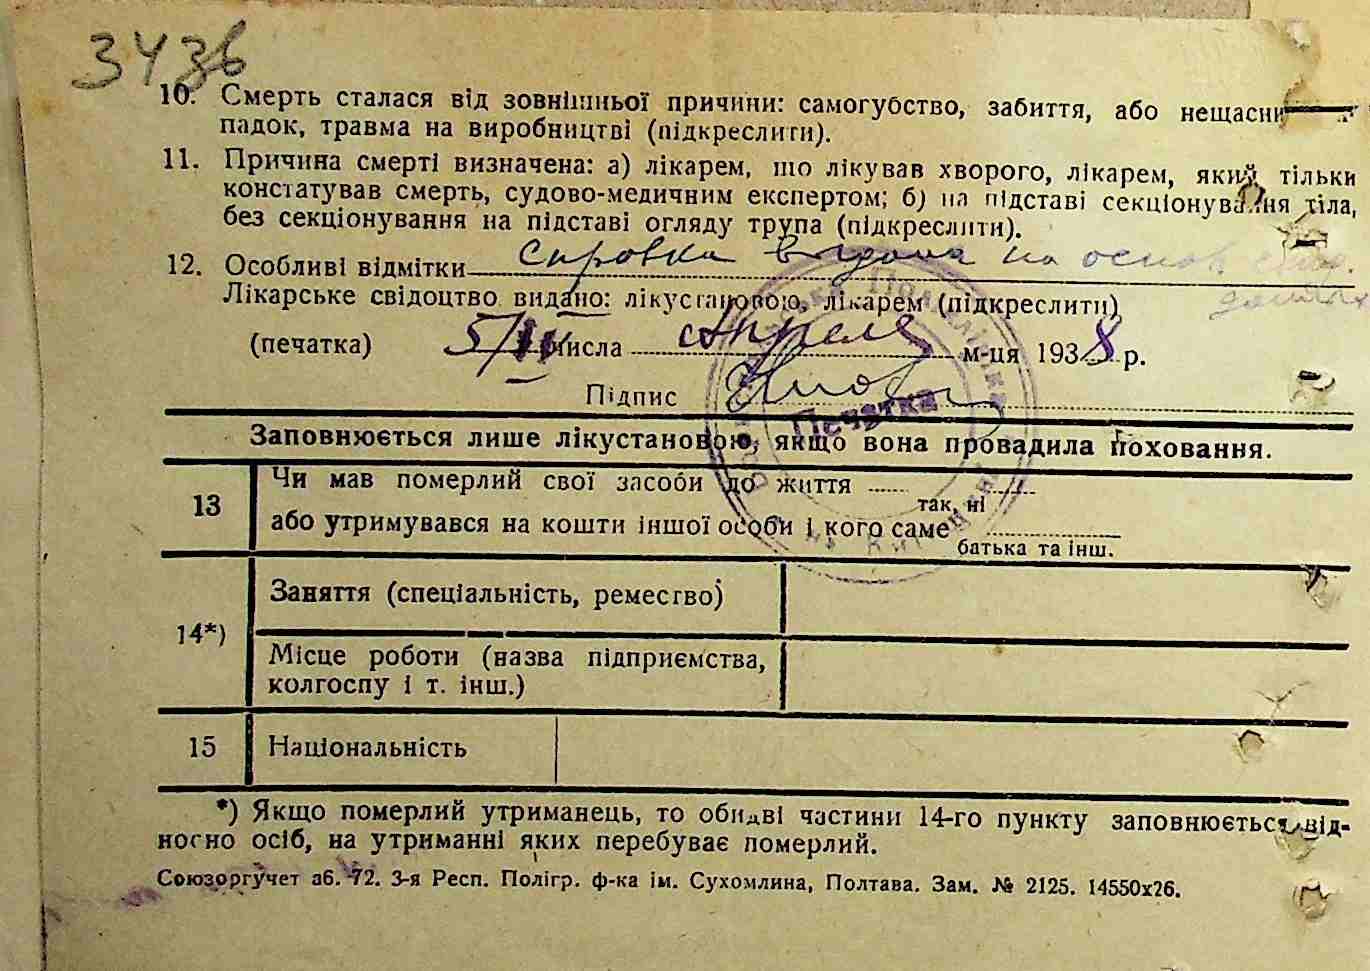 343в
10. Смерть сталася від зовнішньої причини: самогубство, забиття, або нещасни
падок, травма на виробництві (підкреслити).
11. Причина смерті визначена: а) лікарем, що лікував хворого, лікарем, який тільки
констатував смерть, судово-медичним експертом; б) на підставі секціонування тіла,
без секціонування на підставі огляду трупа (підкреслити).
12. Особливі відмітки справка видана на основ
Лікарське свідоцтво видано: лікустановою, лікарем (підкреслити)
(печатка) 5/IV числа апреля м-ця 1938 р.
Підпис
Печатка
Заповнюється лише лікустановою, якщо вона провадила поховання.
13 Чи мав померлий свої засоби до життя
так, ні
або утримувався на кошти іншої особи і кого саме
батька та інш.
14*) Заняття (спеціальність, ремество)
Місце роботи (назва підприємства,
колгоспу і т. інш.)
15 Національність
*) Якщо померлий утриманець, то обидві частини 14-го пункту заповнюється від-
носно осіб, на утриманні яких перебуває померлий.
Союзоргучет аб. 72. 3-я Респ. Полігр. ф-ка ім. Сухомлина, Полтава. Зам. № 2125. 14550х26.